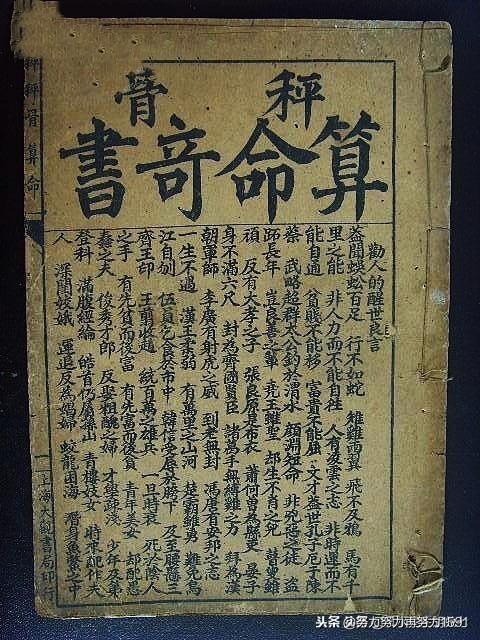 秤骨
算命竒書
勸人的醒世良言
盖聞蜈蚣百足 行不如蛇 雄雞両翼 飛不及鴉 馬有千
里之能 非人力而不能自往 人有凌雲之志 非時運而不
能自通 貧賤不能移 富貴不能屈 文才盖世孔子厄于陳
蔡 武略超群太公釣於渭水 顏淵短命 非兇惡之徒 盜
跖長年 豈良善之輩 堯王雖聖 却生不肖之兒 瞽叟雖
頑 反有大孝之子 張良原是布衣 蕭何曾為縣吏 晏子
身不滿六尺 封為齊國賢臣 諸葛手無縛雞之力 拜為漢
朝軍師 李廣有射虎之威 到老無封 馮唐有安邦之志
一生不遇 漢王雖弱 有萬里之山河 楚霸雖勇 難免烏
江自刎 伍員乞食於市中 韓信受辱於胯下 及至腰懸三
齊王印 王翦收趙 統百萬之雄兵 一旦時衰 死於陰人
之手 有先貧而後富 有先富而後貧 青年美女 却配愚
蠢之夫 俊秀才郎 反娶粗醜之婦 才學淺 少年及第
登科 滿腹經綸 皓首仍屬孫山 青樓妓女 時來配作夫
人 深閨姣娥 運退反為娼婦 蛟龍困海 潛身魚鱉之中
秤骨算命
上海大觀書局印行
头条 @努力努力再努力1591